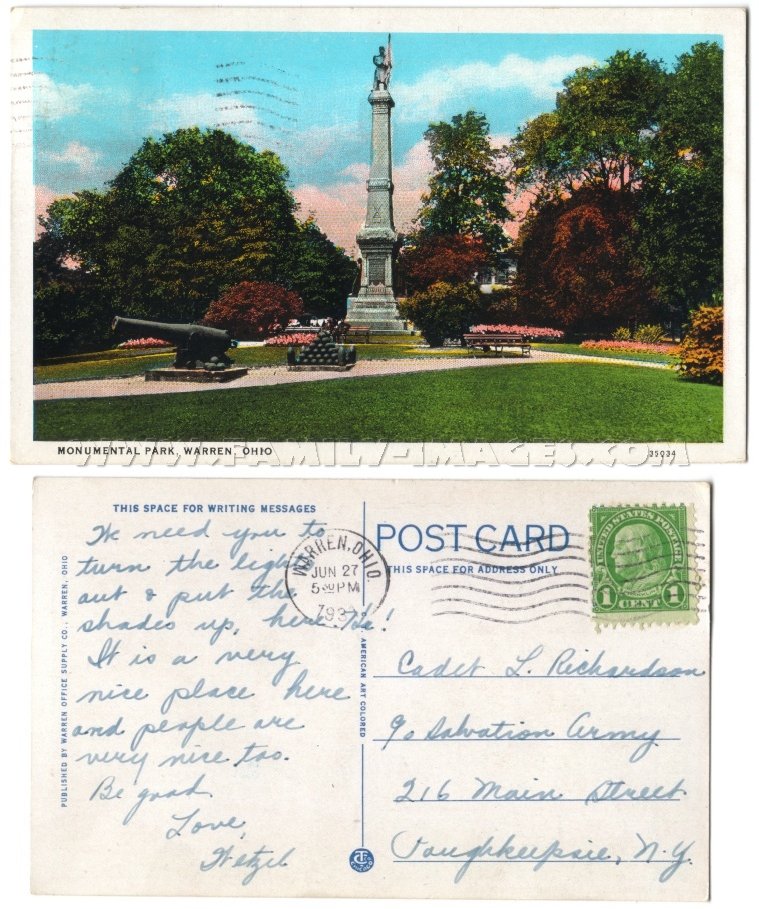 MONUMENTAL PARK, WARREN, OHIO
35034
WWW.FAMILY-IMAGES.COM
THIS SPACE FOR WRITING MESSAGES
We need you to
turn the light
out & put the
shades up, here. Ha!
It is a very
nice place here
and people are
very nice, too.
Be good.
Love,
Hetzel
PUBLISHED BY WARREN OFFICE SUPPLY CO., WARREN, OHIO
WARREN, OHIO
JUN 27
5 30 PM
193
AMERICAN ART COLORED
POST CARD
THIS SPACE FOR ADDRESS ONLY
UNITED STATES POSTAGE
FRANKLIN
1 CENT 1
Cadet L. Richardson
℅ Salvation Army
216 Main Street
Poughkeepsie, N.Y.